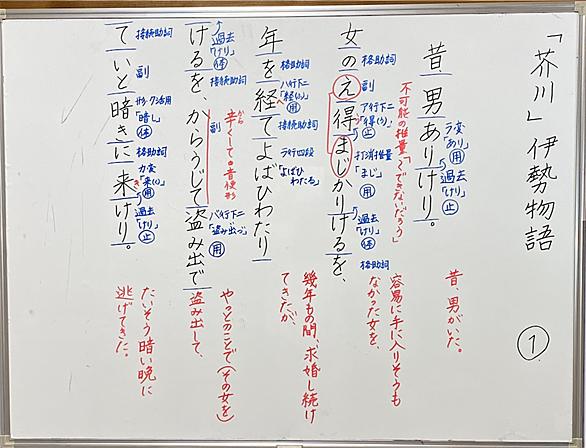 「芥川」伊勢物語
①
昔、男ありけり。
ラ変
「あり」
用
過去
「けり」
止
昔、男がいた。
不可能の推量「〜できないだろう」
女のえ得まじかりけるを、
格助詞
副
ア行下二
「得(う)」
止
打消推量
「まじ」
用
過去
「けり」
体
格助詞
容易に手に入りそうも
なかった女を、
年を経てよばひわたり
格助詞
ハ行下二
「経(ふ)」
用
接続助詞
ラ行四段
「よばひ
わたる」
幾年もの間、求婚し続け
てきたが、
けるを、からうじて盗み出で
過去
「けり」
体
接続助詞
副
辛くして。音便形
から
ダ行下二
「盗み出づ」
用
やっとのことで(その女を)
盗み出して、
ていと暗きに来けり。
接続助詞
副
形・ク活用
「暗し」
体
格助詞
カ変
「来(く)」
用
き
過去
「けり」
止
たいそう暗い晩に
逃げてきた。